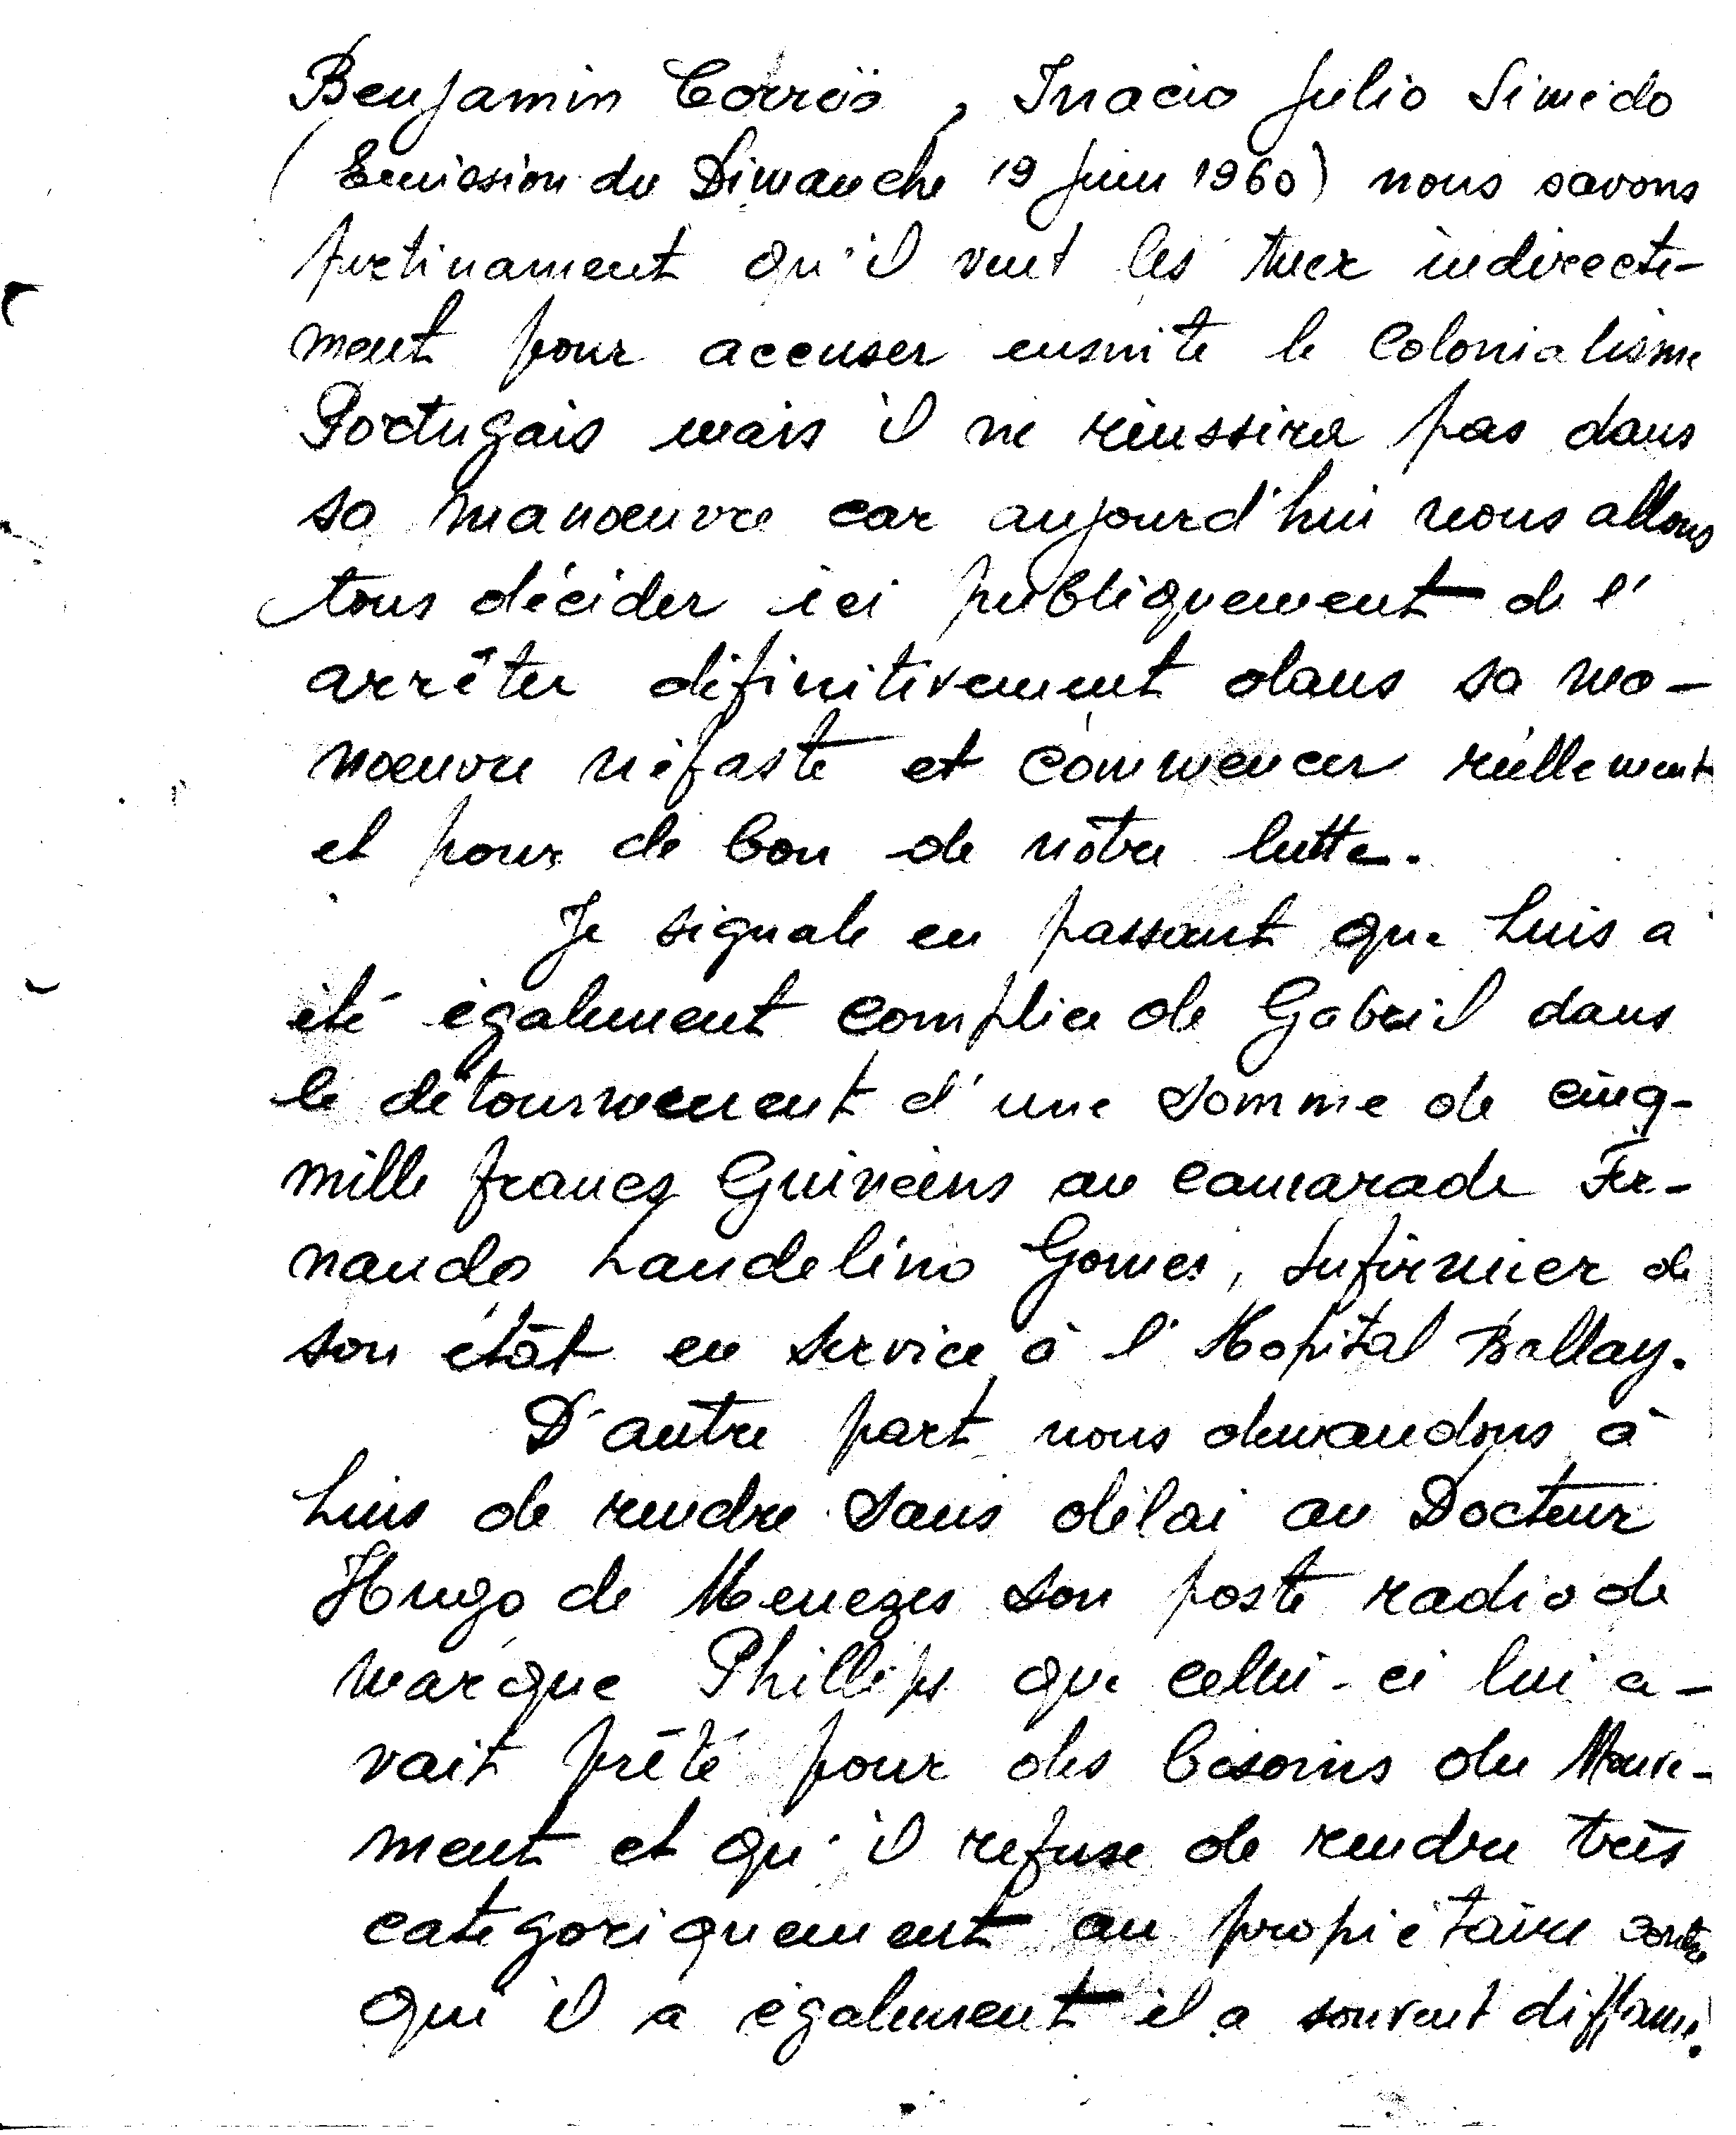 Benjamin Corrëa, Inacio Julio Simedo
(Emission du Dimanche 19 Juin 1960) nous savons
pertinament qu'il veut les tuer indirecte-
ment pour accuser ensuite le Colonialisme
Portugais mais il ne réussira pas dans
sa manœuvre car aujourd'hui nous allons
tous décider ici publiquement de l'
arrêter définitivement dans sa ma-
nœuvre néfaste et commencer réellement
et pour de bon de nôtre lutte.
Je signale en passant que Luis a
été également complice de Gabriel dans
le détournement d'une somme de cinq-
mille francs Guinéens au camarade Fer-
nando Landelino Gomes, Infirmier de
son étât en service à l'Hopital Ballay.
D'autre part nous demandons à
Luis de rendre sans délai au Docteur
Hugo de Menezes son poste radio de
marque Phillips que celui-ci lui a-
vait prêté pour des besoins du Mouve-
ment et qu'il refuse de rendre très
categoriquement au propiétaire contre
qui il a également il a souvent diffamé.